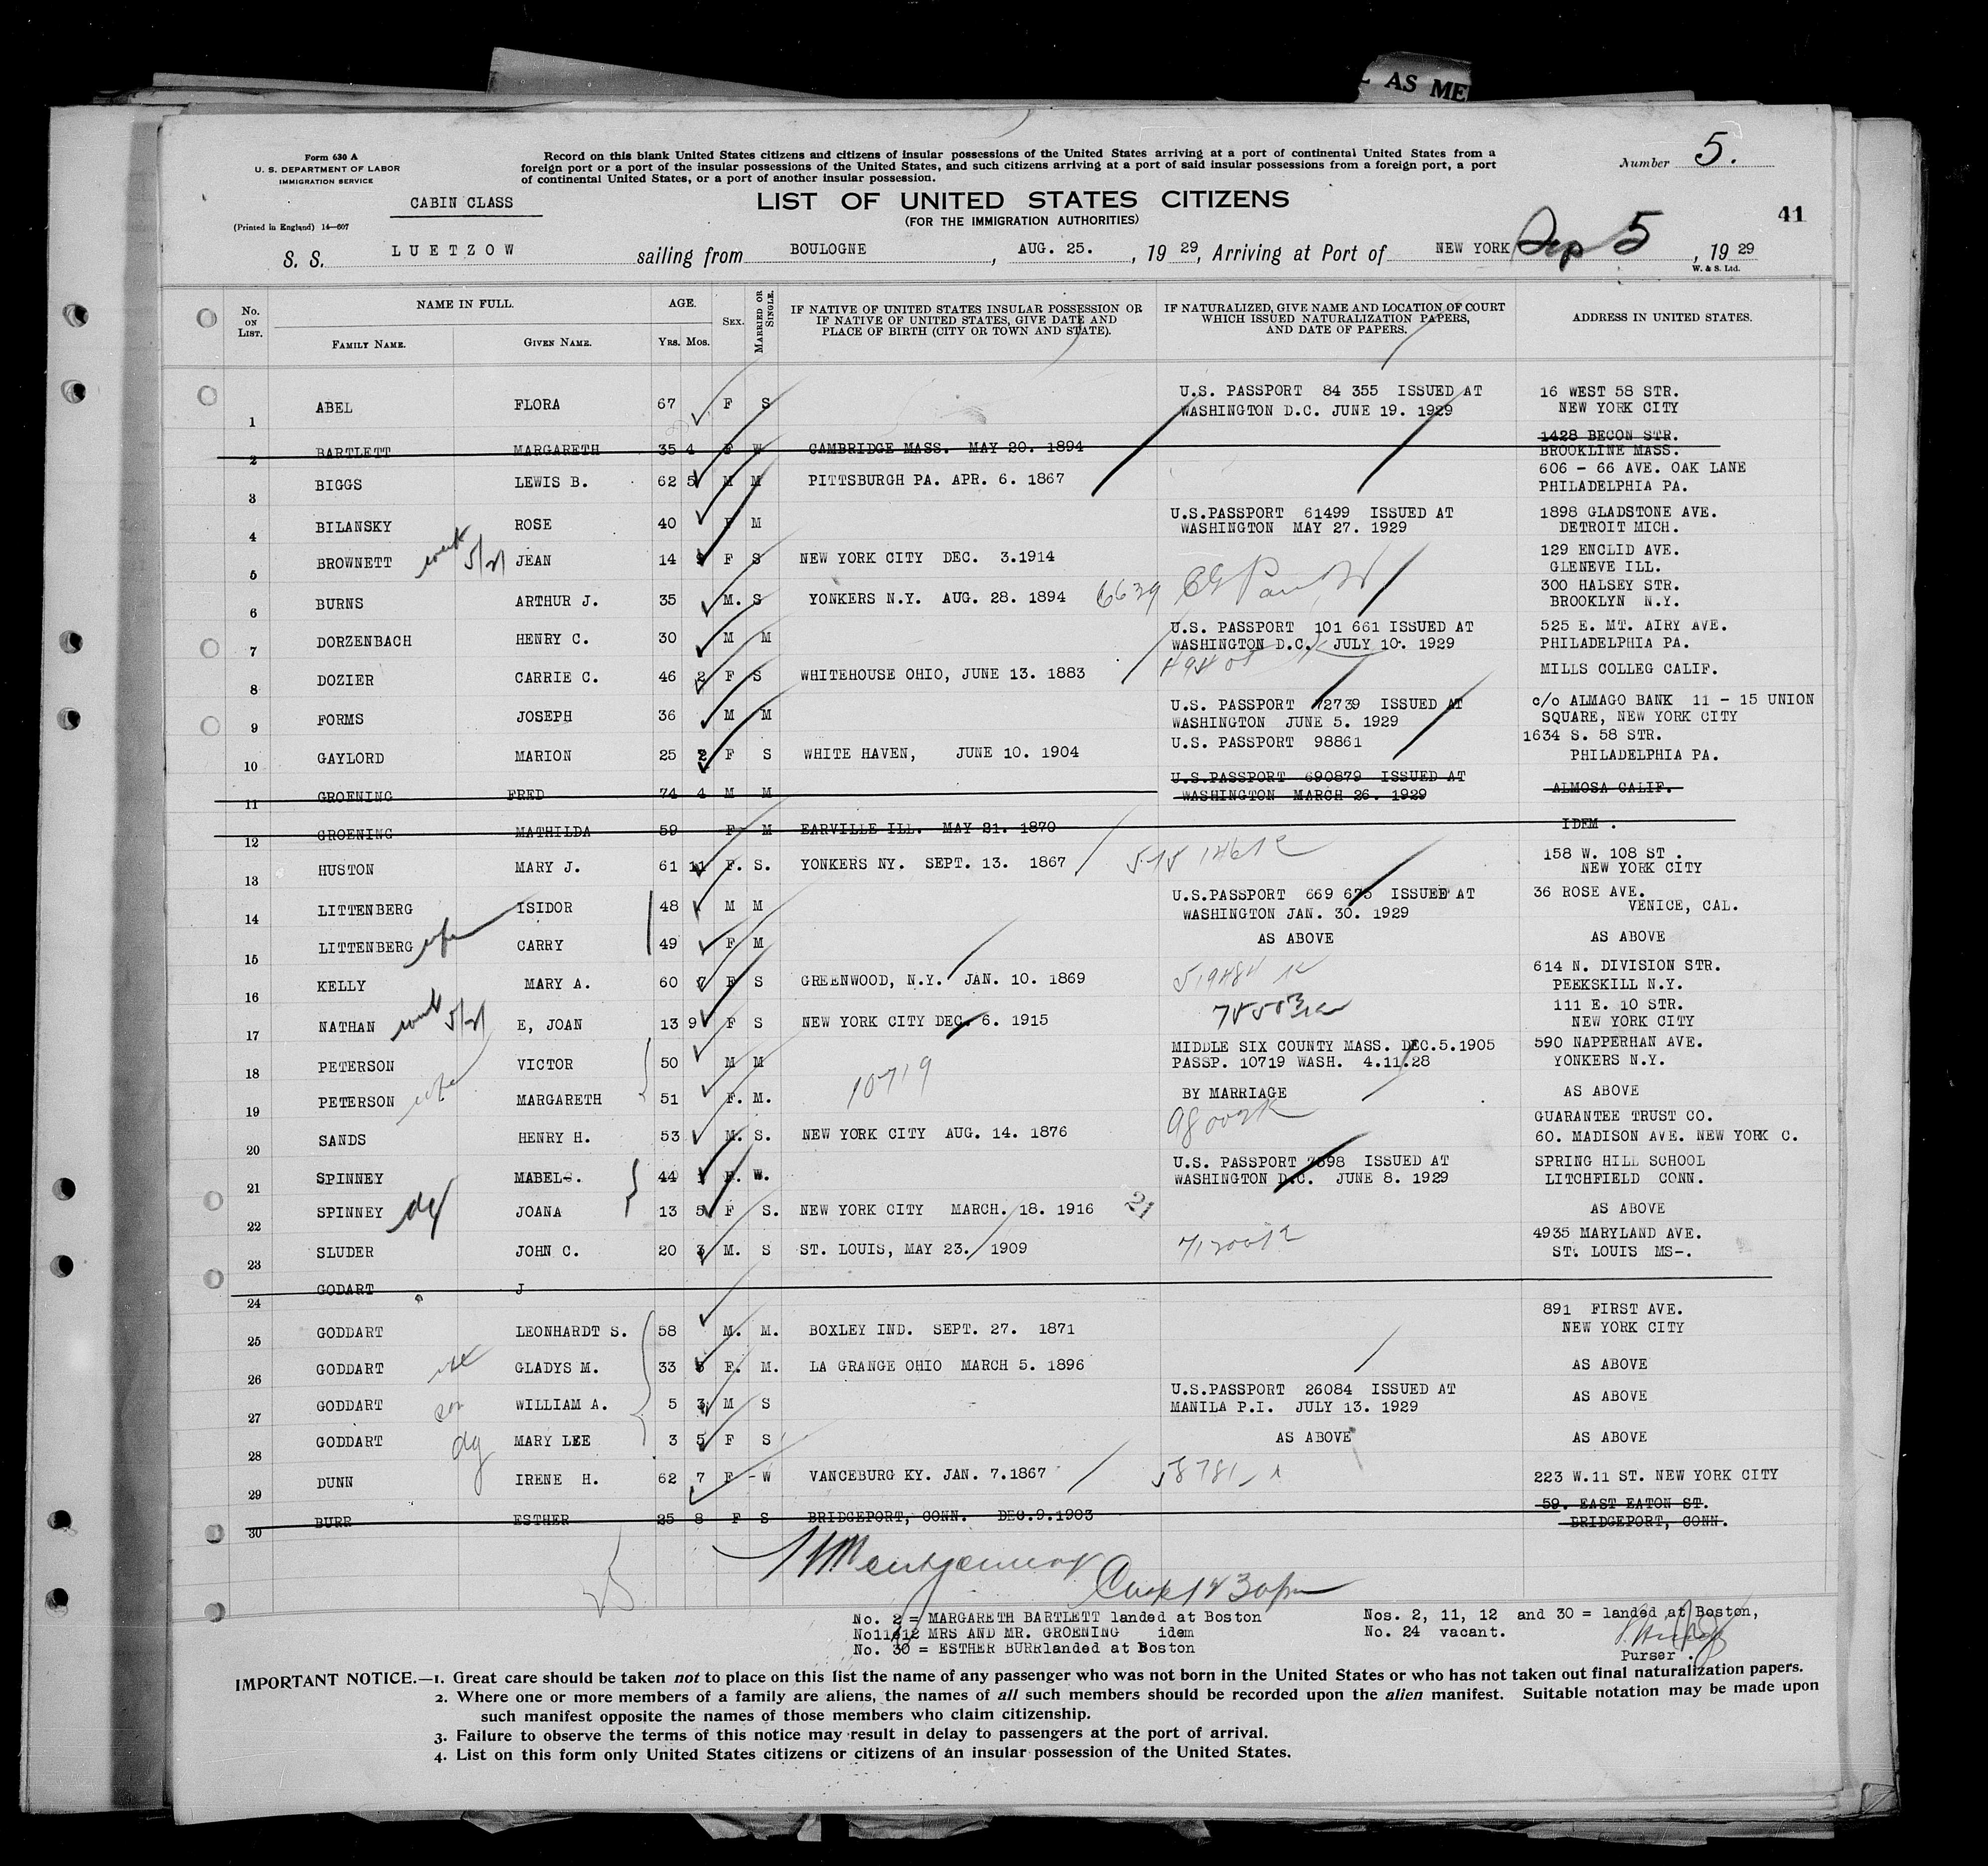 AS ME
Form 630 A
U. S. DEPARTMENT OF LABOR
IMMIGRATION SERVICE
Record on this blank United States citizens and citizens of insular possessions of the United States arriving at a port of continental United States from a
foreign port or a port of the insular possessions of the United States, and such citizens arriving at a port of said insular possessions from a foreign port, a port
of continental United States, or a port of another insular possession.
Number 5.
CABIN CLASS
LIST OF UNITED STATES CITIZENS
(FOR THE IMMIGRATION AUTHORITIES)
41
(Printed in England) 14—607
S. S. LUETZOW sailing from BOULOGNE, AUG. 25., 19 29, Arriving at Port of NEW YORK Sep 5, 19 29
W. & S. Ltd.
No. ON LIST. NAME IN FULL. AGE. SEX. MARRIED OR SINGLE. IF NATIVE OF UNITED STATES INSULAR POSSESSION OR IF NATIVE OF UNITED STATES, GIVE DATE AND PLACE OF BIRTH (CITY OR TOWN AND STATE). IF NATURALIZED, GIVE NAME AND LOCATION OF COURT WHICH ISSUED NATURALIZATION PAPERS, AND DATE OF PAPERS. ADDRESS IN UNITED STATES.
FAMILY NAME. GIVEN NAME. YRS. MOS.
1 ABEL FLORA 67 F S U.S. PASSPORT 84 355 ISSUED AT WASHINGTON D.C. JUNE 19. 1929 16 WEST 58 STR. NEW YORK CITY
2 BARTLETT MARGARETH 35 4 F W CAMBRIDGE MASS. MAY 20. 1894 1428 BECON STR. BROOKLINE MASS.
3 BIGGS LEWIS B. 62 5 M M PITTSBURGH PA. APR. 6. 1867 606 - 66 AVE. OAK LANE PHILADELPHIA PA.
4 BILANSKY ROSE 40 F M U.S.PASSPORT 61499 ISSUED AT WASHINGTON MAY 27. 1929 1898 GLADSTONE AVE. DETROIT MICH.
5 BROWNETT JEAN 14 F S NEW YORK CITY DEC. 3.1914 129 ENCLID AVE. GLENEVE ILL.
6 BURNS ARTHUR J. 35 M. S YONKERS N.Y. AUG. 28. 1894 6639 300 HALSEY STR. BROOKLYN N.Y.
7 DORZENBACH HENRY C. 30 M M U.S. PASSPORT 101 661 ISSUED AT WASHINGTON D.C. JULY 10. 1929 525 E. MT. AIRY AVE. PHILADELPHIA PA.
8 DOZIER CARRIE C. 46 2 F S WHITEHOUSE OHIO, JUNE 13. 1883 MILLS COLLEG CALIF.
9 FORMS JOSEPH 36 M M U.S. PASSPORT 72739 ISSUED AT WASHINGTON JUNE 5. 1929 c/o ALMAGO BANK 11 - 15 UNION SQUARE, NEW YORK CITY
10 GAYLORD MARION 25 2 F S WHITE HAVEN, JUNE 10. 1904 U.S. PASSPORT 98861 1634 S. 58 STR. PHILADELPHIA PA.
11 GROENING FRED 74 4 M M U.S.PASSPORT 690879 ISSUED AT WASHINGTON MARCH 26. 1929 ALMOSA CALIF.
12 GROENING MATHILDA 59 F M EARVILLE ILL. MAY 21. 1870 IDEM .
13 HUSTON MARY J. 61 11 F. S. YONKERS NY. SEPT. 13. 1867 158 W. 108 ST . NEW YORK CITY
14 LITTENBERG ISIDOR 48 M M U.S.PASSPORT 669 675 ISSUED AT WASHINGTON JAN. 30. 1929 36 ROSE AVE. VENICE, CAL.
15 LITTENBERG wife CARRY 49 F M AS ABOVE AS ABOVE
16 KELLY MARY A. 60 7 F S GREENWOOD, N.Y. JAN. 10. 1869 614 N. DIVISION STR. PEEKSKILL N.Y.
17 NATHAN E, JOAN 13 9 F S NEW YORK CITY DEC. 6. 1915 111 E. 10 STR. NEW YORK CITY
18 PETERSON VICTOR 50 M M MIDDLE SIX COUNTY MASS. DEC.5.1905 PASSP. 10719 WASH. 4.11.28 590 NAPPERHAN AVE. YONKERS N.Y.
19 PETERSON wife MARGARETH 51 F. M. 10719 BY MARRIAGE AS ABOVE
20 SANDS HENRY H. 53 M. S. NEW YORK CITY AUG. 14. 1876 GUARANTEE TRUST CO. 60. MADISON AVE. NEW YORK C.
21 SPINNEY MABEL-. 44 F. W. U.S. PASSPORT 7598 ISSUED AT WASHINGTON D.C. JUNE 8. 1929 SPRING HILL SCHOOL LITCHFIELD CONN.
22 SPINNEY dg JOANA 13 5 F S. NEW YORK CITY MARCH. 18. 1916 21 AS ABOVE
23 SLUDER JOHN C. 20 3 M. S ST. LOUIS, MAY 23. 1909 4935 MARYLAND AVE. ST. LOUIS MS-.
24 GODART J
25 GODDART LEONHARDT S. 58 M. M. BOXLEY IND. SEPT. 27. 1871 891 FIRST AVE. NEW YORK CITY
26 GODDART GLADYS M. 33 F. M. LA GRANGE OHIO MARCH 5. 1896 AS ABOVE
27 GODDART son WILLIAM A. 5 3 M S U.S.PASSPORT 26084 ISSUED AT MANILA P.I. JULY 13. 1929 AS ABOVE
28 GODDART dg MARY LEE 3 5 F S AS ABOVE AS ABOVE
29 DUNN IRENE H. 62 7 F - W VANCEBURG KY. JAN. 7.1867 223 W.11 ST. NEW YORK CITY
30 BURR ESTHER 25 8 F S BRIDGEPORT, CONN. DEC.9.1903 59. EAST EATON ST. BRIDGEPORT, CONN.
Montgomery
No. 2 = MARGARETH BARTLETT landed at Boston
No11&12 MRS AND MR. GROENING idem
No. 30 = ESTHER BURRlanded at Boston
Nos. 2, 11, 12 and 30 = landed at Boston,
No. 24 vacant.
Purser .
IMPORTANT NOTICE.—1. Great care should be taken not to place on this list the name of any passenger who was not born in the United States or who has not taken out final naturalization papers.
2. Where one or more members of a family are aliens, the names of all such members should be recorded upon the alien manifest. Suitable notation may be made upon
such manifest opposite the names of those members who claim citizenship.
3. Failure to observe the terms of this notice may result in delay to passengers at the port of arrival.
4. List on this form only United States citizens or citizens of an insular possession of the United States.